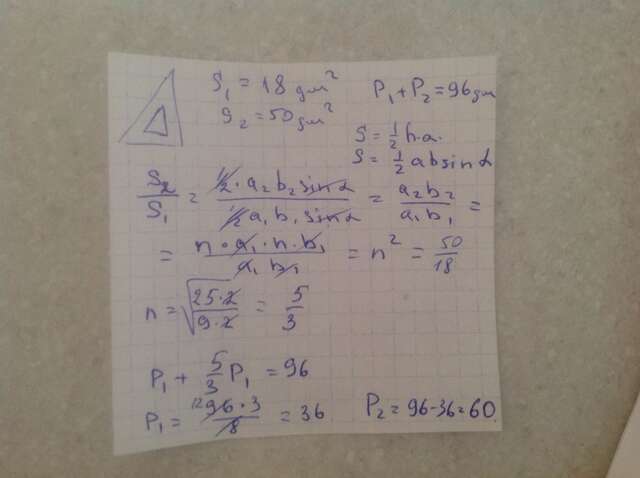 S₁ = 18 дм²
S₂ = 50 дм²
P₁ + P₂ = 96 дм
S = 1/2 h·a.
S = 1/2 ab sin α
S₂/S₁ = (1/2 · a₂ b₂ sin α)/(1/2 a₁ b₁ sin α) = a₂b₂/a₁b₁ =
= (n · a₁ · n · b₁)/(a₁ b₁) = n² = 50/18
n = √(25·2/9·2) = 5/3
P₁ + 5/3 P₁ = 96
P₁ = (¹²96 · 3)/8 = 36
P₂ = 96-36=60